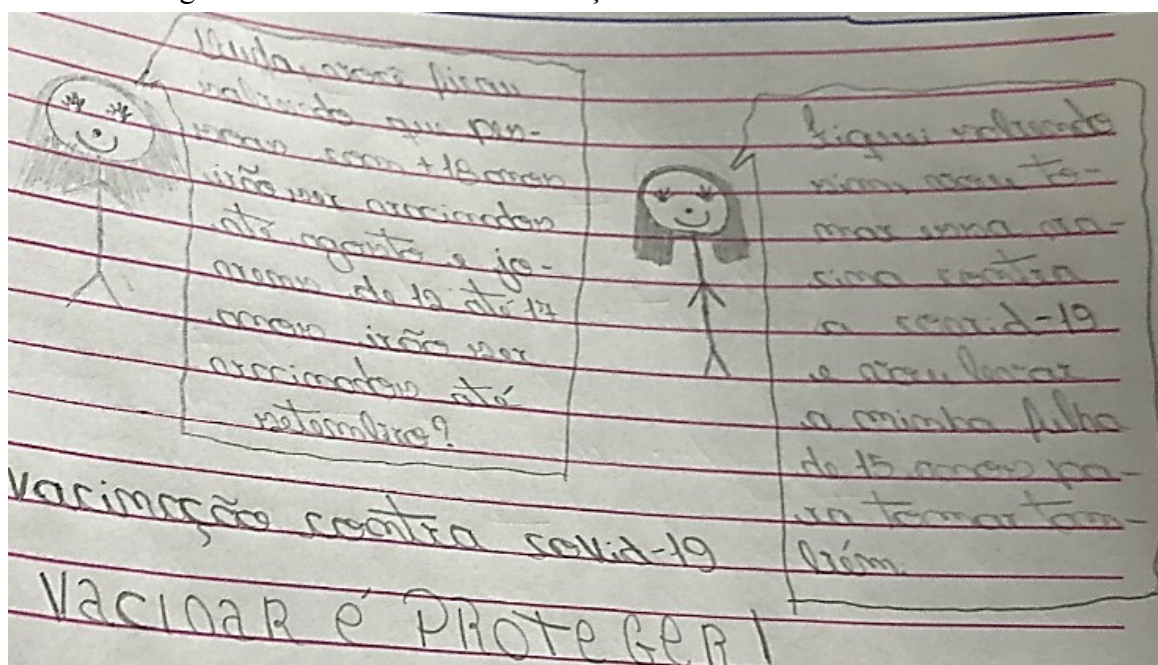 Duda, você ficou
sabendo que pes-
soas com +18 anos
irão ser vacinadas
até agosto e jo-
vens de 12 até 17
anos irão ser
vacinados até
setembro?
Fiquei sabendo
sim, vou to-
mar uma va-
cina contra
a covid-19
e vou levar
a minha filha
de 15 anos pa-
ra tomar tam-
bém.
Vacinação contra covid-19
VACINAR É PROTEGER!